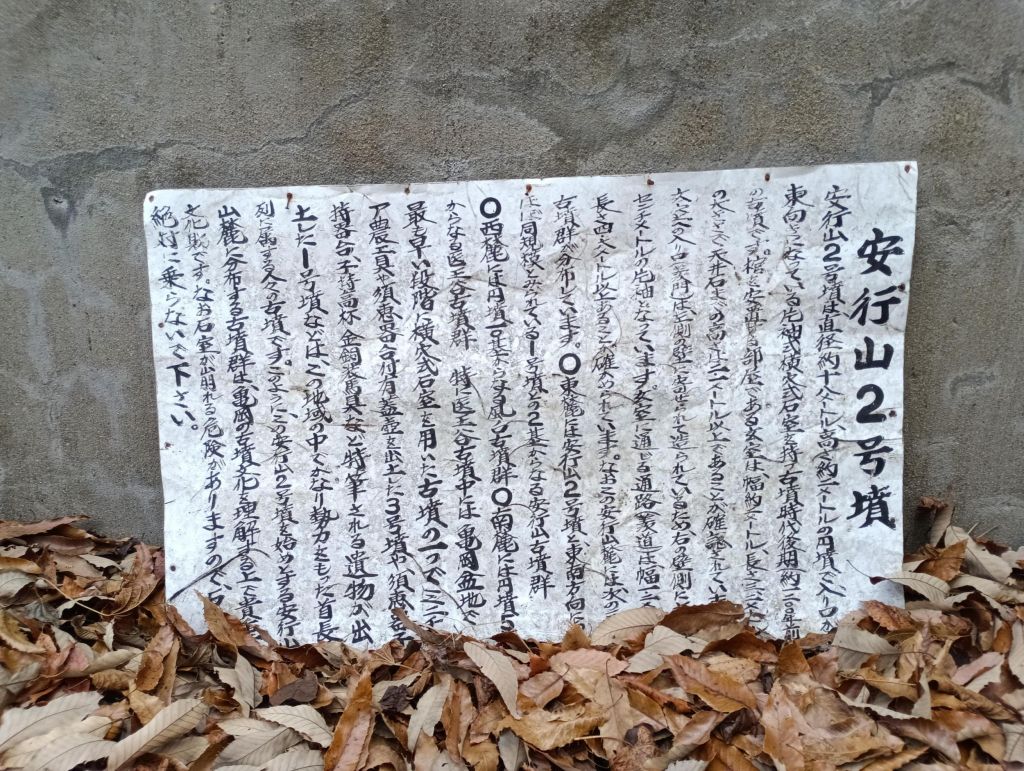 安行山2号墳
安行山2号墳は直径約十メートル、高さ約一メートルの円墳で入口が
東向きになっている片袖式横穴式石室を持つ古墳時代後期約
の古墳です。棺を安置する部屋である玄室は、幅約二メートル、長さ
の大きさで天井石までの高さは二メートル以上であることが確認されてい
玄室の入り口玄門は
センチメートルの片袖になっています。玄室に通じる通路羨道は幅一
長さ四メートル以上あることが確められています。なおこの安行山麓は次の
古墳群が分布しています。〇東麓には安行山2号墳と東南方向に
ほぼ同規模とみられている1号墳との2基からなる安行山古墳群
〇西麓には円墳 〇南麓には円墳5
からなる医王谷古墳群 特に医王谷古墳中には亀岡盆地で
最も早い段階に横穴式石室を用いた古墳の一つで
農工具や須恵器台付有蓋壺を出土した3号墳や須恵器子
持器台、子持高杯、金銅装馬具など特筆される遺物が出
土した1号墳などはこの地域の中でかなり勢力をもった首長
列に属する人々の古墳です。このようにこの安行山2号墳を始めとする安行山
山麓に分布する古墳群は、亀岡の古墳文化を理解する上で貴重
文化財です。なお石室が崩れる危険がありますので
絶対に乗らないで下さい。